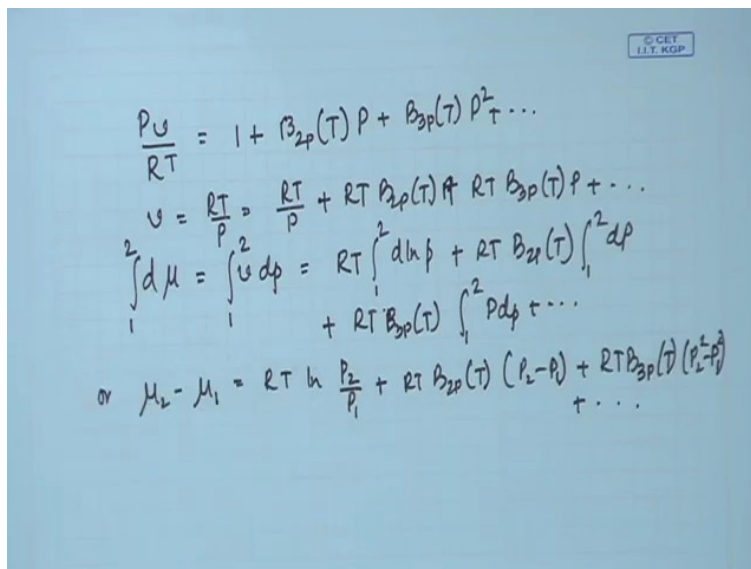 © CET
I.I.T. KGP
Pv/RT = 1 + B₂ₚ(T) P + B₃ₚ(T) P² + ...
v = RT/P = RT/P + RT B₂ₚ(T) + RT B₃ₚ(T) P + ...
∫₁² dμ = ∫₁² v dp = RT ∫₁² d ln p + RT B₂ₚ(T) ∫₁² dp
+ RT B₃ₚ(T) ∫₁² P dp + ...
or μ₂ - μ₁ = RT ln P₂/P₁ + RT B₂ₚ(T) (P₂-P₁) + RT B₃ₚ(T) (P₂²-P₁²)
+ ...